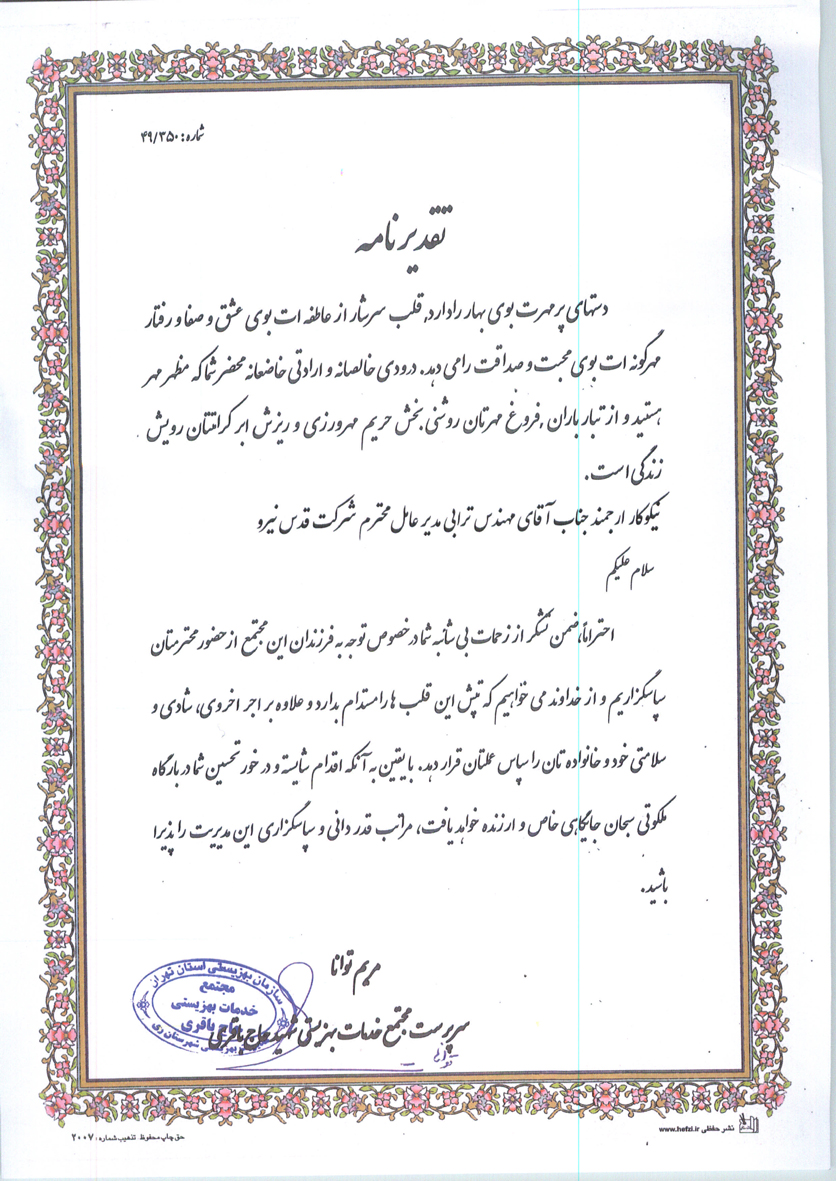 شماره: ۴۹/۳۵۰
تقدیرنامه
دستهای پر مهرت بوی بهار را دارد, قلب سرشار از عاطفه ات بوی عشق و صفا و رفتار
مهرگونه ات بوی محبت و صداقت را می دهد. درودی خالصانه و ارادتی خاضعانه محضر شما که مظهر مهر
هستید و از تبار باران ,فروغ مهرتان روشنی بخش حریم مهرورزی و ریزش ابر کرامتتان رویش
زندگی است.
نیکوکار ارجمند جناب آقای مهندس ترابی مدیر عامل محترم شرکت قدس نیرو
سلام علیکم
احتراماً،ضمن تشکر از زحمات بی شائبه شما در خصوص توجه به فرزندان این مجتمع از حضور محترمتان
سپاسگزاریم و از خداوند می خواهیم که تپش این قلب ها را مستدام بدارد و علاوه بر اجر اخروی، شادی و
سلامتی خود و خانواده تان را سپاس عملتان قرار دهد. با یقین به آنکه اقدام شایسته و در خور تحسین شما در بارگاه
ملکوتی سبحان جایگاهی خاص و ارزنده خواهد یافت، مراتب قدر دانی و سپاسگزاری این مدیریت را پذیرا
باشید.
مریم توانا
سرپرست مجتمع خدمات بهزیستی شهید حاج باقری
سازمان بهزیستی استان تهران
مجتمع
خدمات بهزیستی
حاج باقری
بهزیستی شهرستان ری
نشر حفظی www.hefzi.ir
حق چاپ محفوظ تذهیب شماره: ۲۰۰۷